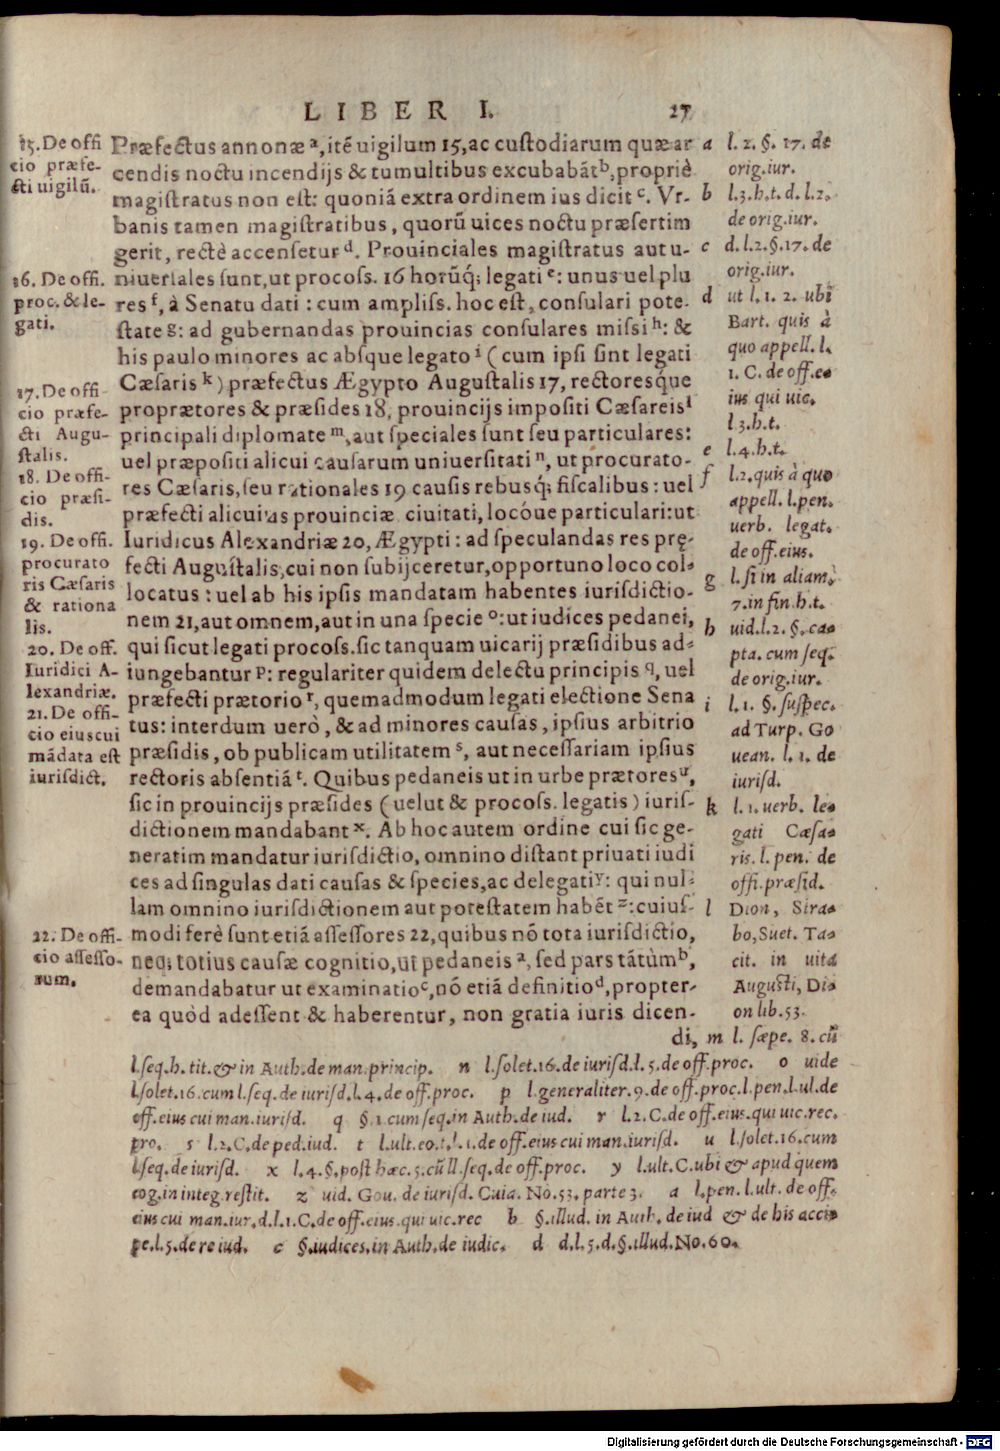 LIBER I. 27
Præfectus annonæ ᵃ, itē uigilum 15, ac custodiarum quæ ar
cendis noctu incendijs & tumultibus excubabāt ᵇ, propriè
magistratus non est: quoniā extra ordinem ius dicit ᶜ. Vr-
banis tamen magistratibus, quorū uices noctu præsertim
gerit, rectè accensetur ᵈ. Prouinciales magistratus aut u-
niuersales sunt, ut procoss. 16 horūq́; legati ᵉ: unus uel plu
res ᶠ, à Senatu dati: cum ampliss. hoc est, consulari pote-
state ᵍ: ad gubernandas prouincias consulares missi ʰ: &
his paulo minores ac absque legato ⁱ (cum ipsi sint legati
Cæsaris ᵏ) præfectus Ægypto Augustalis 17, rectoresque
proprætores & præsides 18, prouincijs impositi Cæsareis ˡ
principali diplomate ᵐ, aut speciales sunt seu particulares:
uel præpositi alicui causarum uniuersitati ⁿ, ut procurato-
res Cæsaris, seu rationales 19 causis rebusq́; fiscalibus: uel
præfecti alicuius prouinciæ ciuitati, locóue particulari: ut
Iuridicus Alexandriæ 20, Ægypti: ad speculandas res prę-
fecti Augustalis, cui non subijceretur, opportuno loco col-
locatus: uel ab his ipsis mandatam habentes iurisdictio-
nem 21, aut omnem, aut in una specie ᵒ: ut iudices pedanei,
qui sicut legati procoss. sic tanquam uicarij præsidibus ad-
iungebantur ᵖ: regulariter quidem delectu principis q, uel
præfecti prætorio ʳ, quemadmodum legati electione Sena
tus: interdum uerò, & ad minores causas, ipsius arbitrio
præsidis, ob publicam utilitatem ˢ, aut necessariam ipsius
rectoris absentiā ᵗ. Quibus pedaneis ut in urbe prætores ᵘ,
sic in prouincijs præsides (uelut & procoss. legatis) iuris-
dictionem mandabant ˣ. Ab hoc autem ordine cui sic ge-
neratim mandatur iurisdictio, omnino distant priuati iudi
ces ad singulas dati causas & species, ac delegati ʸ: qui nul-
lam omnino iurisdictionem aut potestatem habēt ᶻ: cuius-
modi ferè sunt etiā assessores 22, quibus nō tota iurisdictio,
neq; totius causæ cognitio, ut pedaneis ᵃ, sed pars tātùm ᵇ,
demandabatur ut examinatio ᶜ, nō etiā definitio ᵈ, propter-
ea quòd adessent & haberentur, non gratia iuris dicen-
di,
15. De offi
cio præfe-
cti uigilū.
16. De offi.
proc. & le-
gati.
17. De offi-
cio præfe-
cti Augu-
stalis.
18. De offi-
cio præsi-
dis.
19. De offi.
procurato
ris Cæsaris
& rationa
lis.
20. De off.
Iuridici A-
lexandriæ.
21. De offi-
cio eius cui
mādata est
iurisdict.
22. De offi-
cio assesso-
rum.
a l. 2. §. 17. de
orig. iur.
b l. 3. h. t. d. l. 2.
de orig. iur.
c d. l. 2. §. 17. de
orig. iur.
d ut l. 1. 2. ubi
Bart. quis à
quo appell. l.
1. C. de off. e-
ius qui uic.
l. 3. h. t.
e l. 4. h. t.
f l. 2. quis à quo
appell. l. pen.
uerb. legat.
de off. eius.
g l. si in aliam
7. in fin. h. t.
h uid. l. 2. §. ca-
pta. cum seq.
de orig. iur.
i l. 1. §. suspec.
ad Turp. Go
uean. l. 1. de
iurisd.
k l. 1. uerb. le-
gati Cæsa-
ris. l. pen. de
offi. præsid.
l Dion, Stra-
bo, Suet. Ta-
cit. in uita
Augusti, Di-
on lib. 53.
m l. sæpe. 8. cū
l. seq. h. tit. & in Auth. de man. princip. n l. solet. 16. de iurisd. l. 5. de off. proc. o uide
l. solet. 16. cum l. seq. de iurisd. l. 4. de off. proc. p l. generaliter. 9. de off. proc. l. pen. l. ul. de
off. eius cui man. iurisd. q §. 1. cum seq. in Auth. de iud. r l. 2. C. de off. eius. qui uic. rec.
pro. s l. 2. C. de ped. iud. t l. ult. eo. t. l. 1. de off. eius cui man. iurisd. u l. solet. 16. cum
l. seq. de iurisd. x l. 4. §. post hæc. 5. cū ll. seq. de off. proc. y l. ult. C. ubi & apud quem
cog. in integ. restit. z uid. Gou. de iurisd. Cuia. No. 53. parte 3. a l. pen. l. ult. de off.
eius cui man. iur. d. l. 1. C. de off. eius. qui uic. rec b §. illud. in Auth. de iud & de his acci-
pe. l. 5. de re iud. c §. iudices. in Auth. de iudic. d d. l. 5. d. §. illud. No. 60.
Digitalisierung gefördert durch die Deutsche Forschungsgemeinschaft - DFG